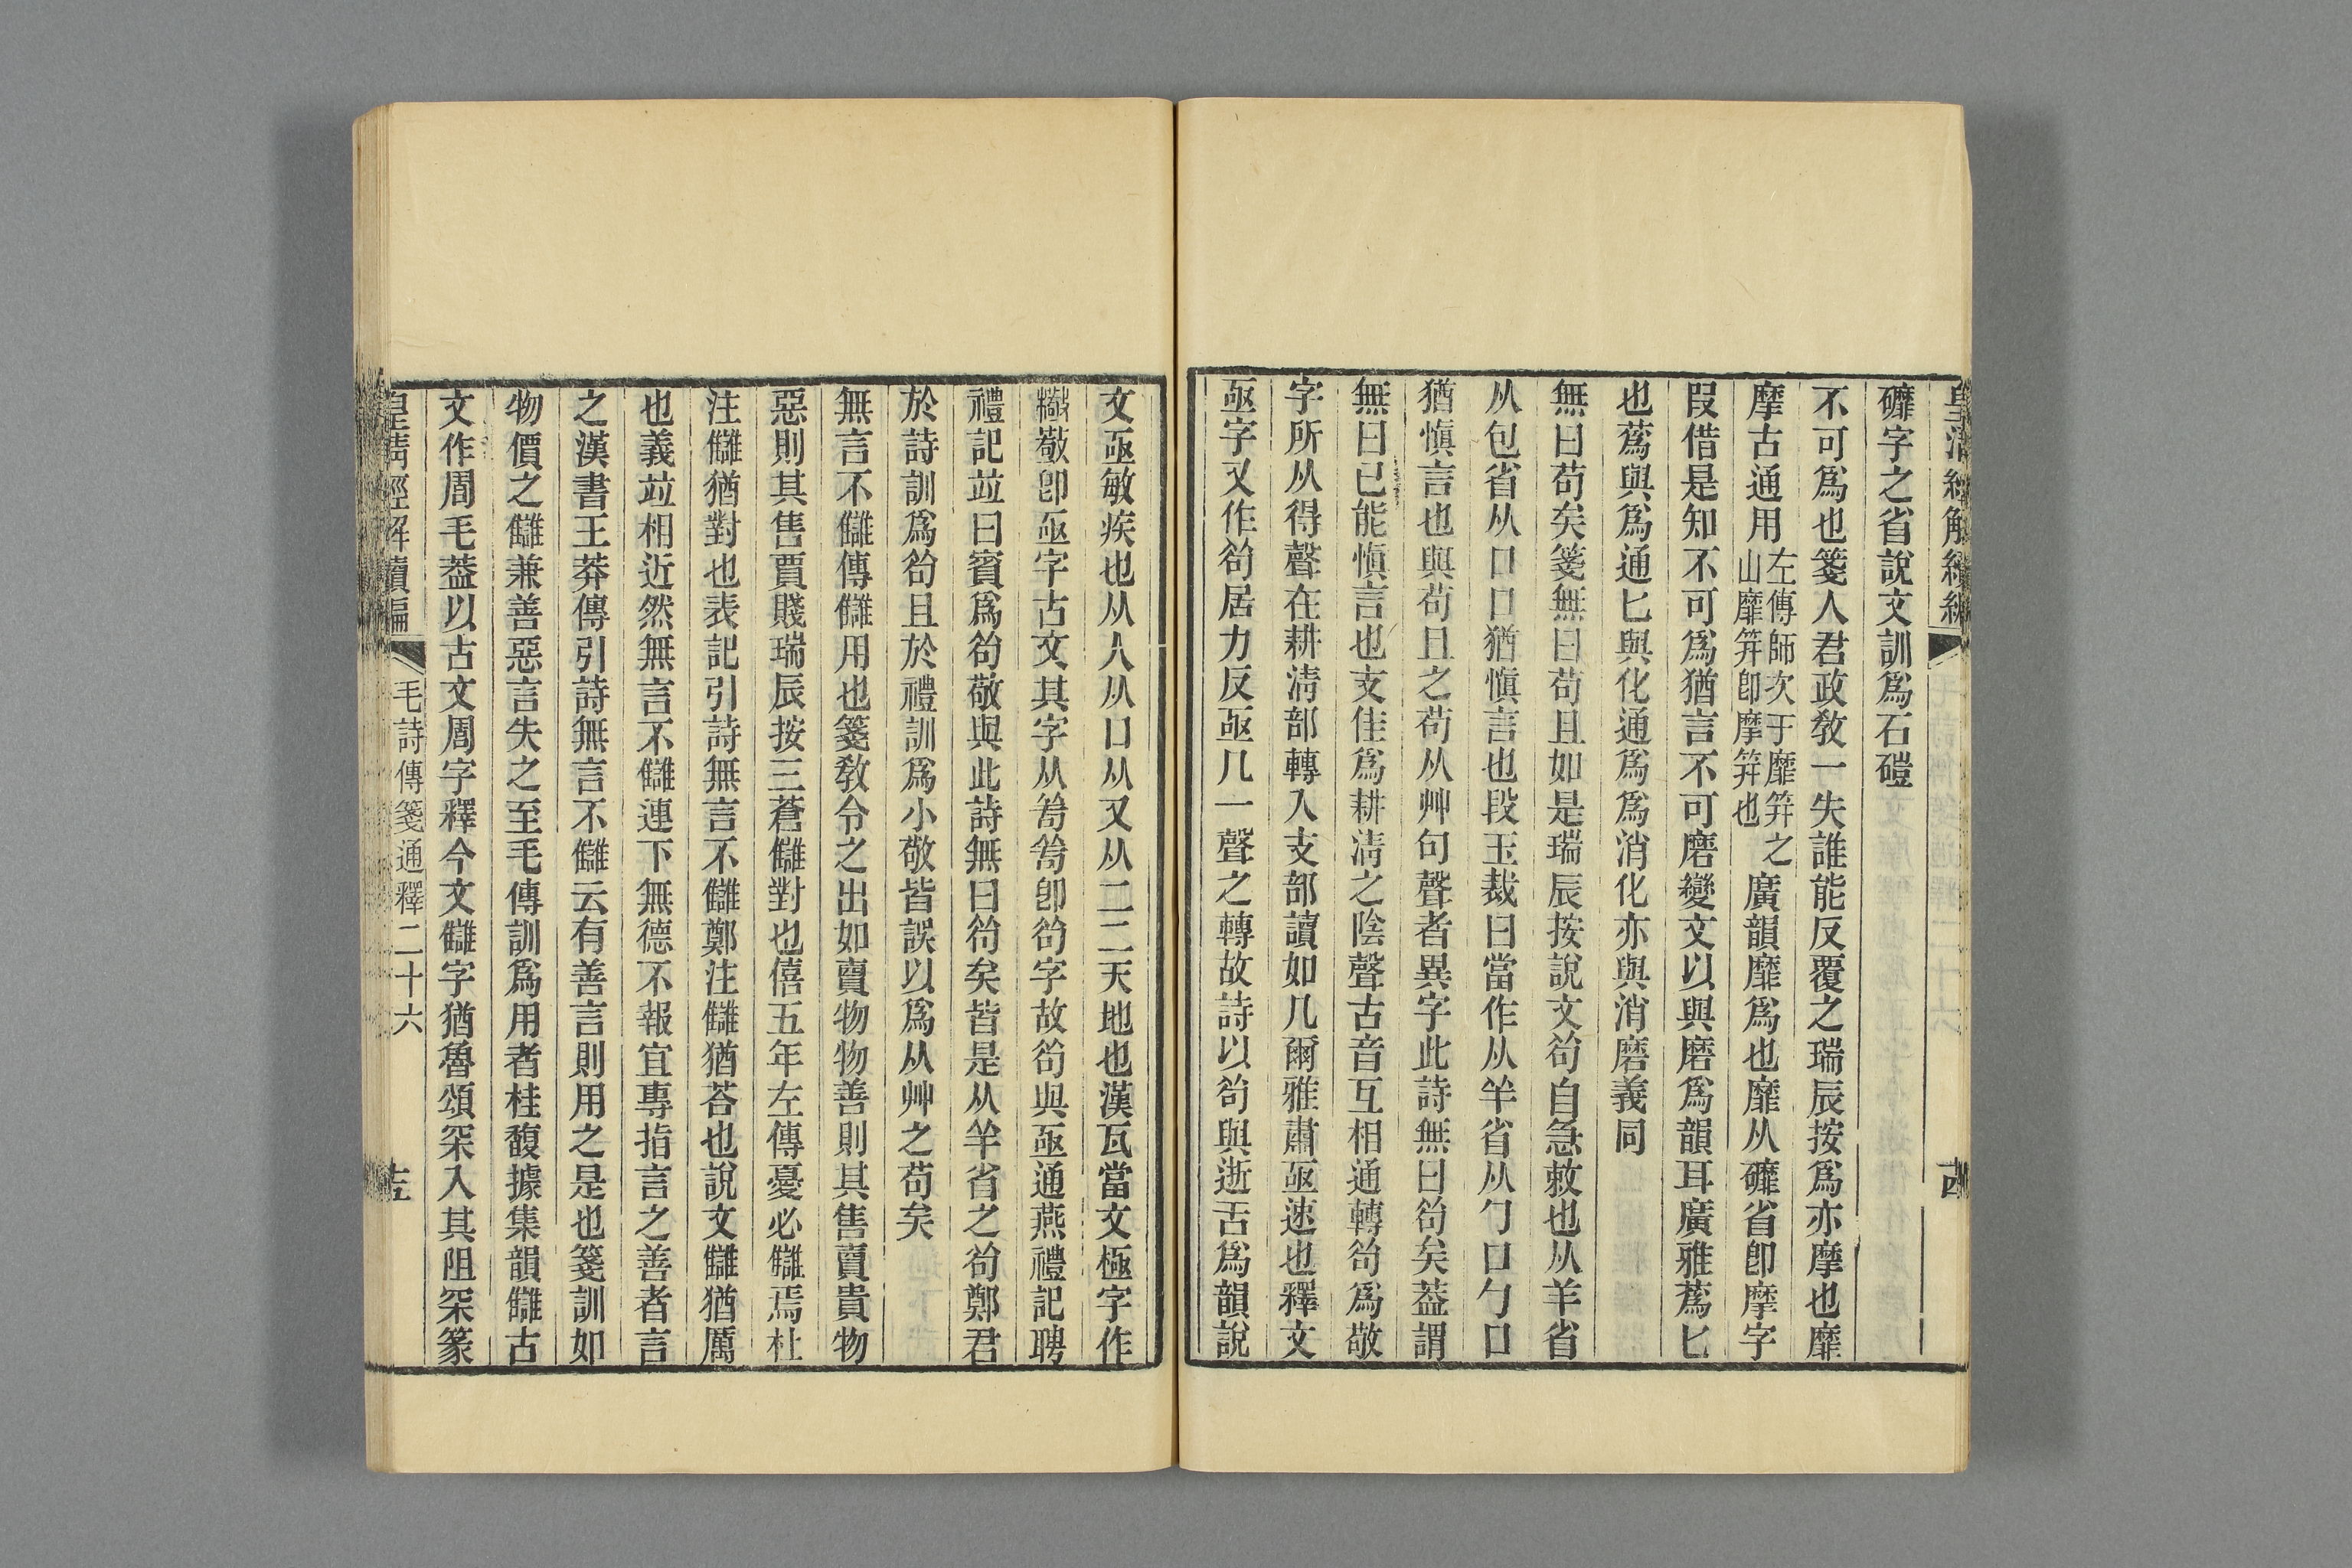 礳字之省說文訓爲石磑
不可爲也箋人君政敎一失誰能反覆之瑞辰按爲亦摩也靡
摩古通用左傳師次于靡筓之山靡筓卽摩筓也廣韻靡爲也靡从礳省卽摩字
叚借是知不可爲猶言不可磨變文以與磨爲韻耳廣雅蔿匕
也蔿與爲通匕與化通爲爲消化亦與消磨義同
無曰苟矣箋無曰苟且如是瑞辰按說文茍自急敕也从羊省
从包省从口口猶愼言也段玉裁曰當作从羊省从勹口勹口
猶愼言也與苟且之苟从艸句聲者異字此詩無曰茍矣葢謂
無曰已能愼言也支佳爲耕淸之陰聲古音互相通轉茍爲敬
字所从得聲在耕淸部轉入支部讀如几爾雅肅亟速也釋文
亟字又作茍居力反亟几一聲之轉故詩以茍與逝舌爲韻說
文亟敏疾也从人从口从又从二二天地也漢瓦當文極字作
卽亟字古文其字从卽茍字故茍與亟通燕禮記聘
禮記竝曰賓爲茍敬與此詩無曰茍矣皆是从羊省之茍鄭君
於詩訓爲茍且於禮訓爲小敬皆誤以爲从艸之苟矣
無言不讎傳讎用也箋敎令之出如賣物物善則其售賣貴物
惡則其售賈賤瑞辰按三蒼讎對也僖五年左傳憂必讎焉杜
注讎猶對也表記引詩無言不讎鄭注讎猶荅也說文讎猶譍
也義竝相近然無言不讎連下無德不報宜專指言之善者言
之漢書王莽傳引詩無言不讎云有善言則用之是也箋訓如
物價之讎兼善惡言失之至毛傳訓爲用者桂馥據集韻讎古
文作周毛葢以古文周字釋今文讎字猶魯頌罙入其阻罙篆
皇淸經解續編 毛詩傳箋通釋二十六